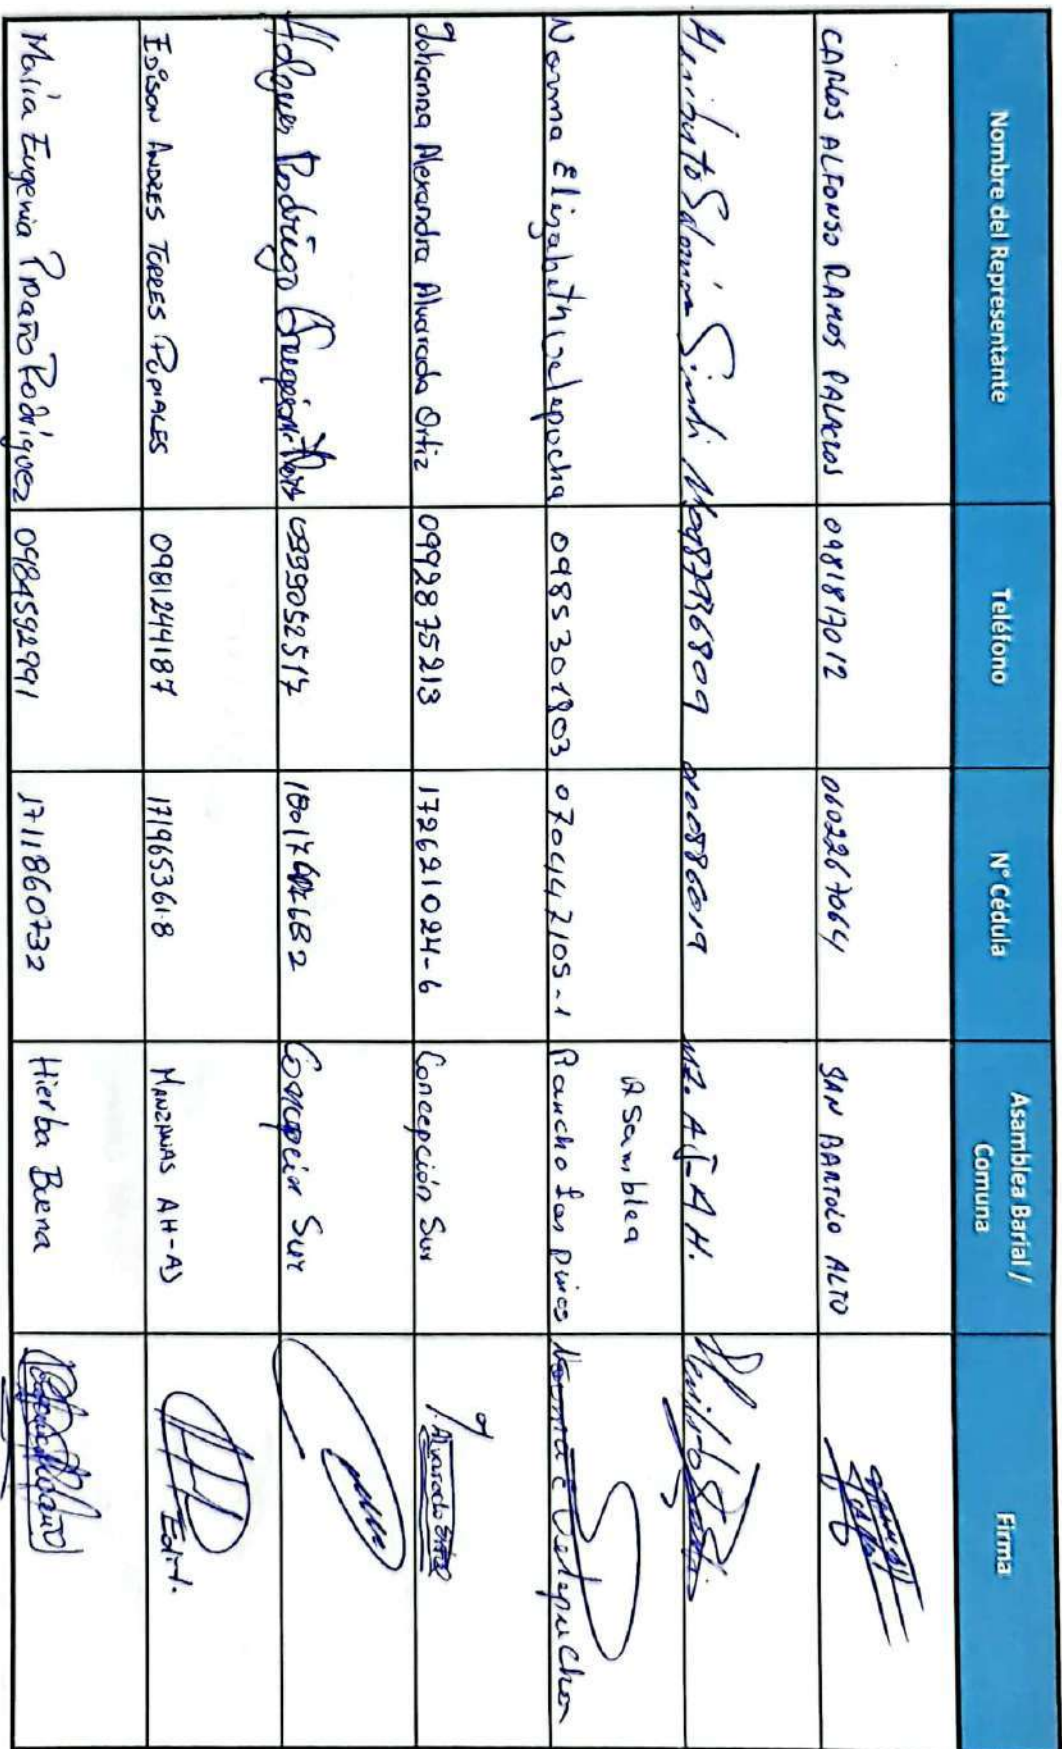 Nombre del Representante Teléfono N° Cédula Asamblea Barial / Comuna Firma
CARLOS ALFONSO RAMOS PALACIOS 0981817012 0602267064 SAN BARTOLO ALTO
Heriberto Salomón 0987936809 0100886019 MZ. AJ-AH.
Norma Elizabeth 0985301803 070442105-1 Asamblea Rancho Los Pinos Norma E
Johanna Alexandra Alvarado Ortiz 0992875213 172621024-6 Concepción Sur J. Alvarado Ortiz
Rodrigo 0999052517 Concepción Sur
EDISON ANDRES TORRES PUPIALES 0981244187 171965361-8 MANZANAS AH-AJ
María Eugenia Proaño Rodríguez 0984592991 1711860732 Hierba Buena